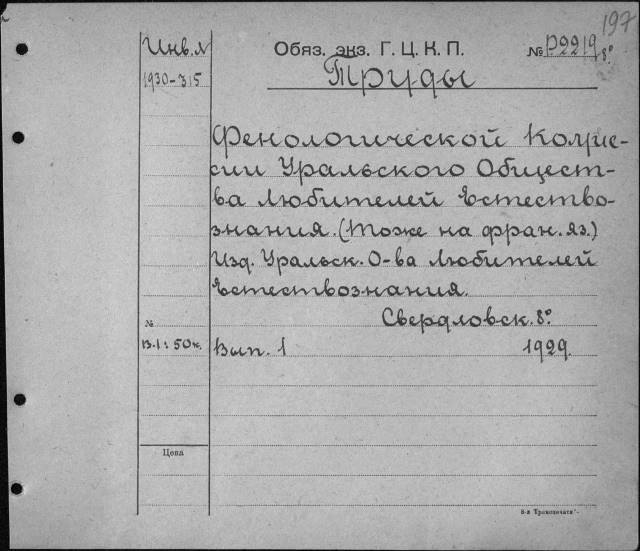 197
Инв. № Обяз. экз. Г. Ц. К. П. № Р2219 8º
1930-315 Труды
Фенологической Комис-
сии Уральского Общест-
ва Любителей Естество-
знания. (Тоже на фран. яз.)
Изд. Уральск. О-ва Любителей
Естествознания.
№ Свердловск. 8º
В.1: 50к. Вып. 1 1929.
Цена